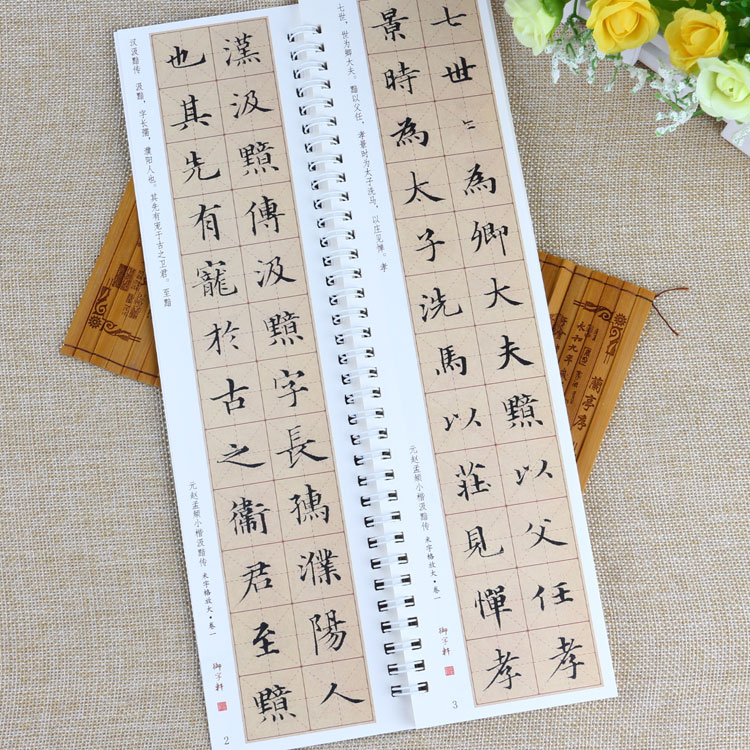 漢汲黯傳汲黯字長孺濮陽人
也其先有寵於古之衛君至黯
汉汲黯传 汲黯，字长孺，濮阳人也。其先有宠于古之卫君。至黯
元赵孟頫小楷汲黯传 米字格放大·卷一
御字軒
2
七世〻為卿大夫黯以父任孝
景時為太子洗馬以莊見憚孝
七世，世为卿大夫。黯以父任，孝景时为太子洗马，以庄见惮。孝
元赵孟頫小楷汲黯传 米字格放大·卷一
御字軒
3
蘭亭序
永和九年